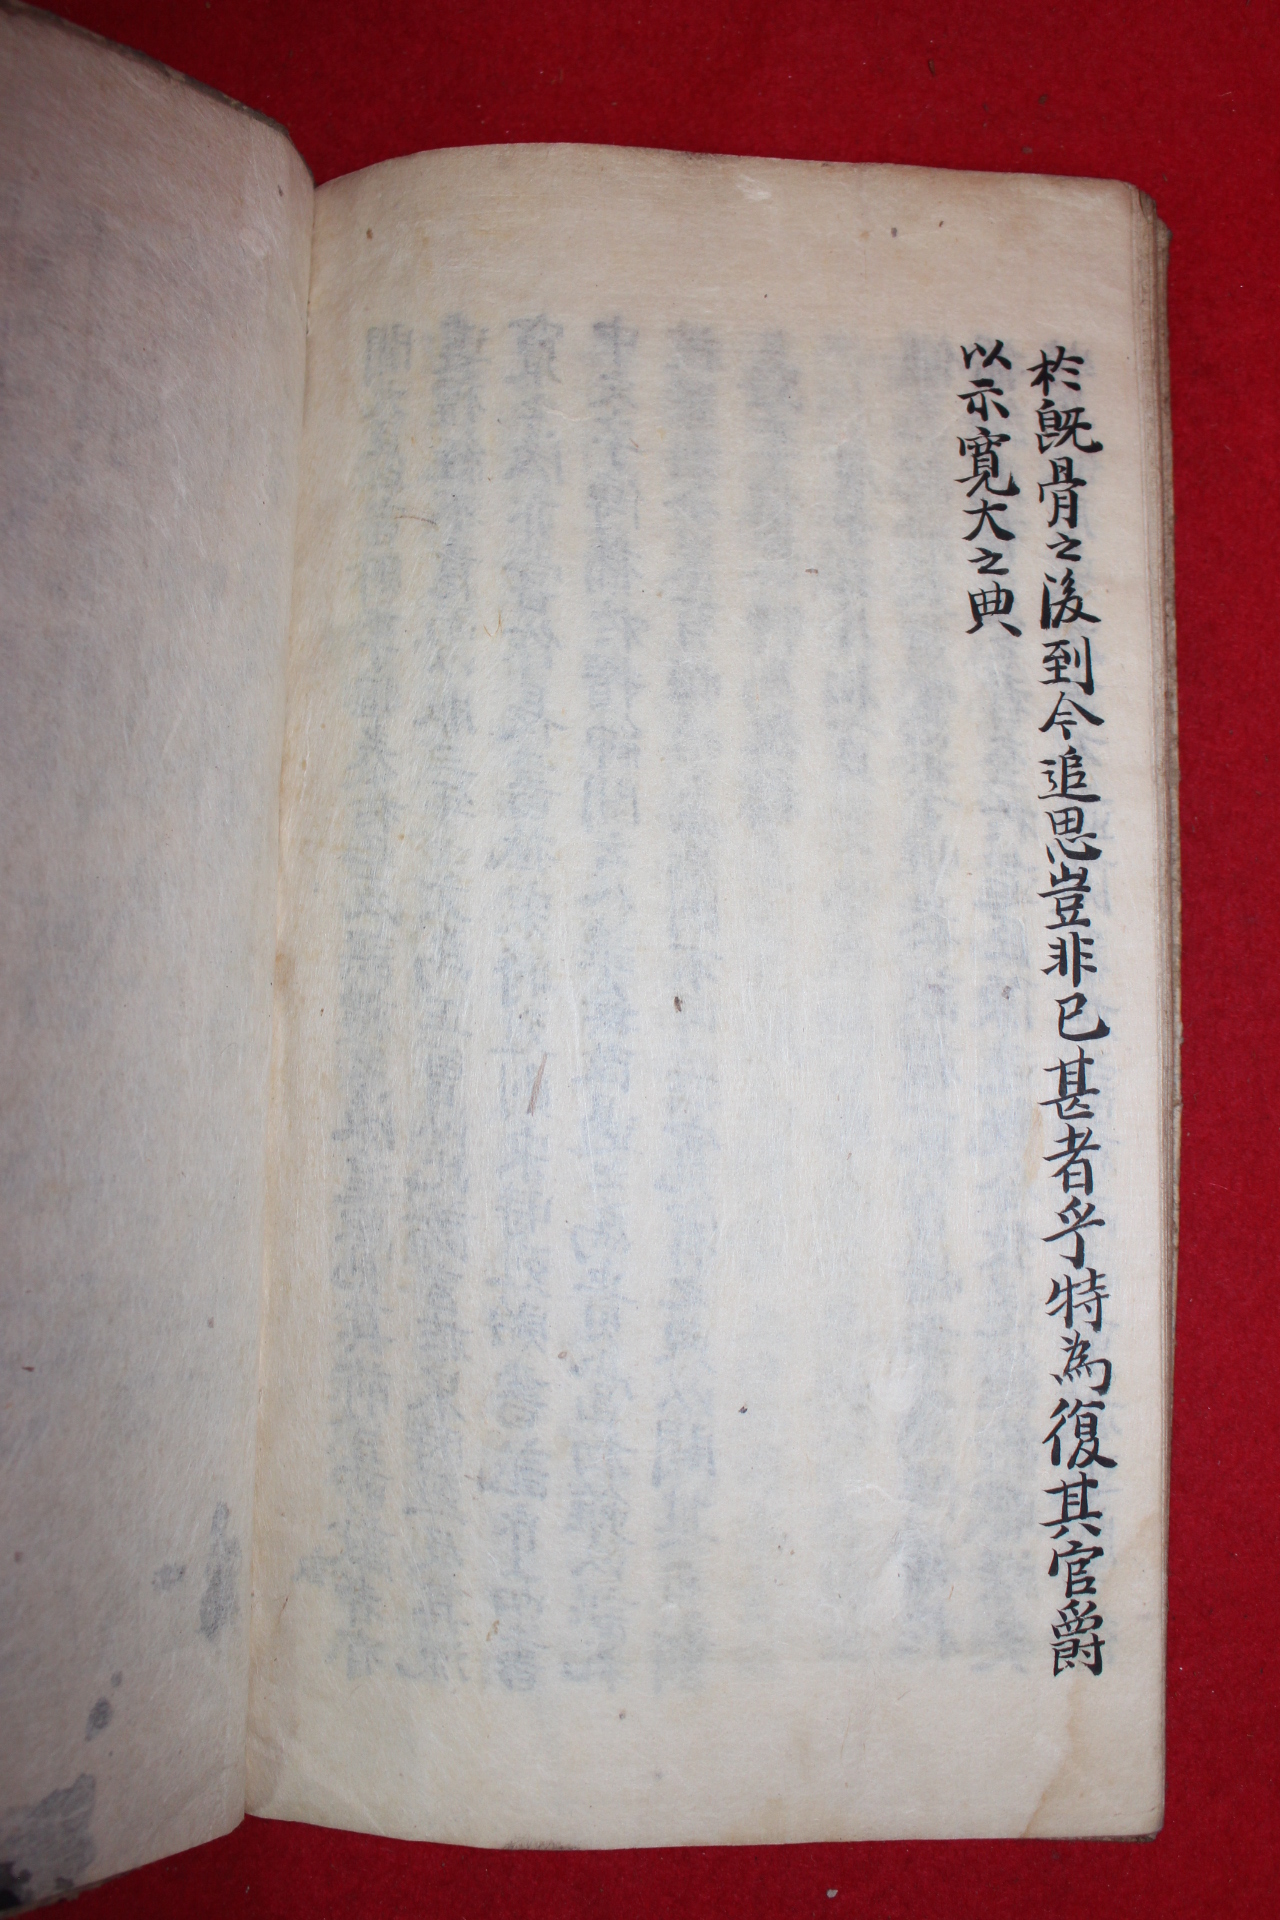 於旣骨之後到今追思豈非已甚者乎特為復其官爵
以示寬大之典